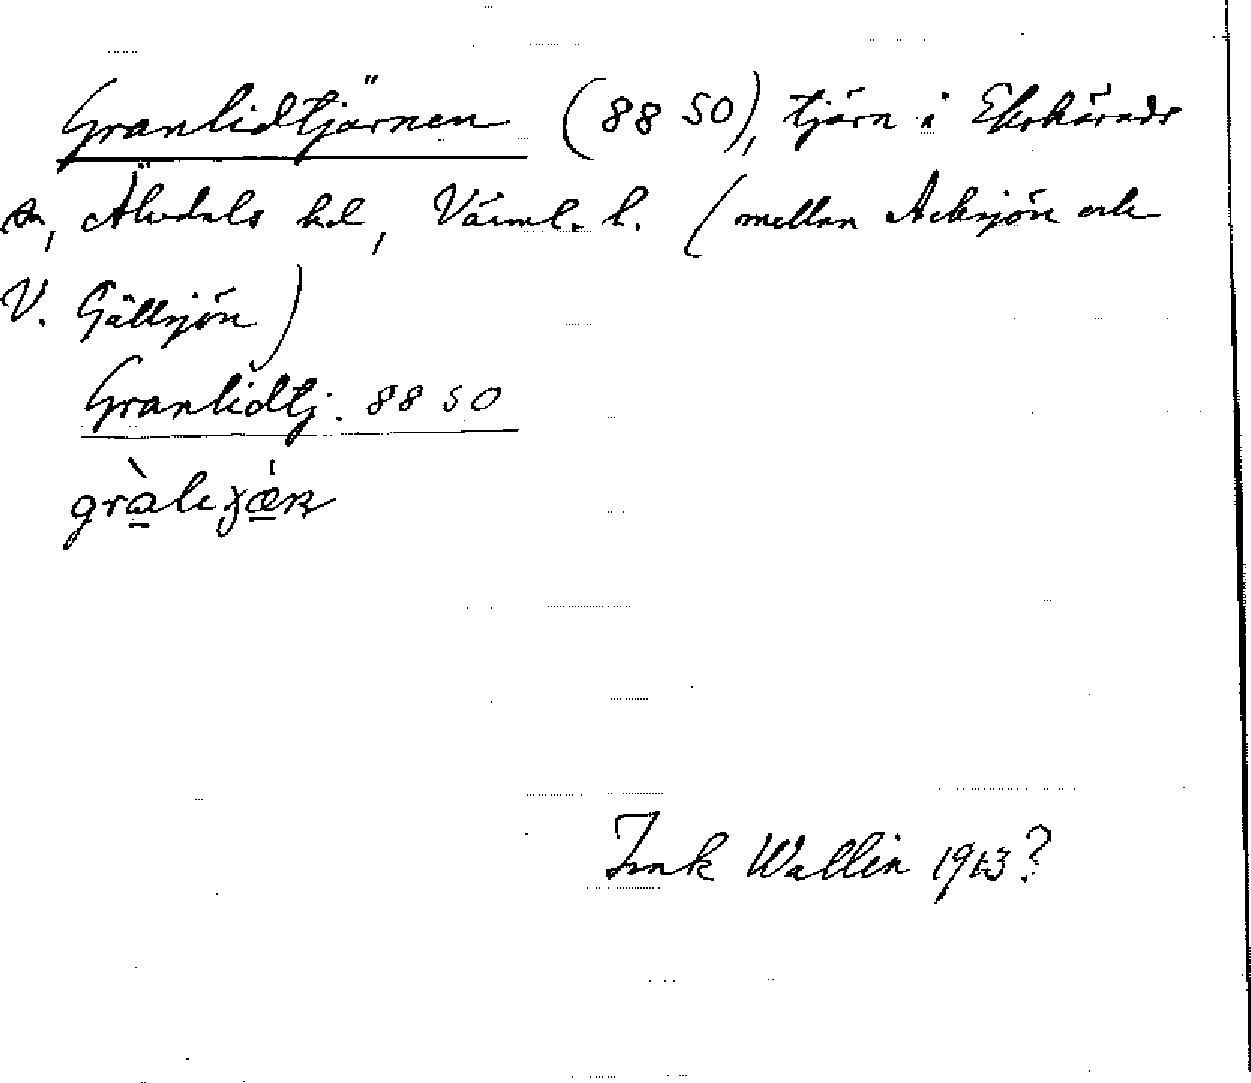 Granlidtjärnen (88 50), tjärn i Ekshärads
sn, Älvdals hd, Värml. l. (mellan Acksjön och
V. Gällsjön)
Granlidtj. 88 50
Wallin 1913?